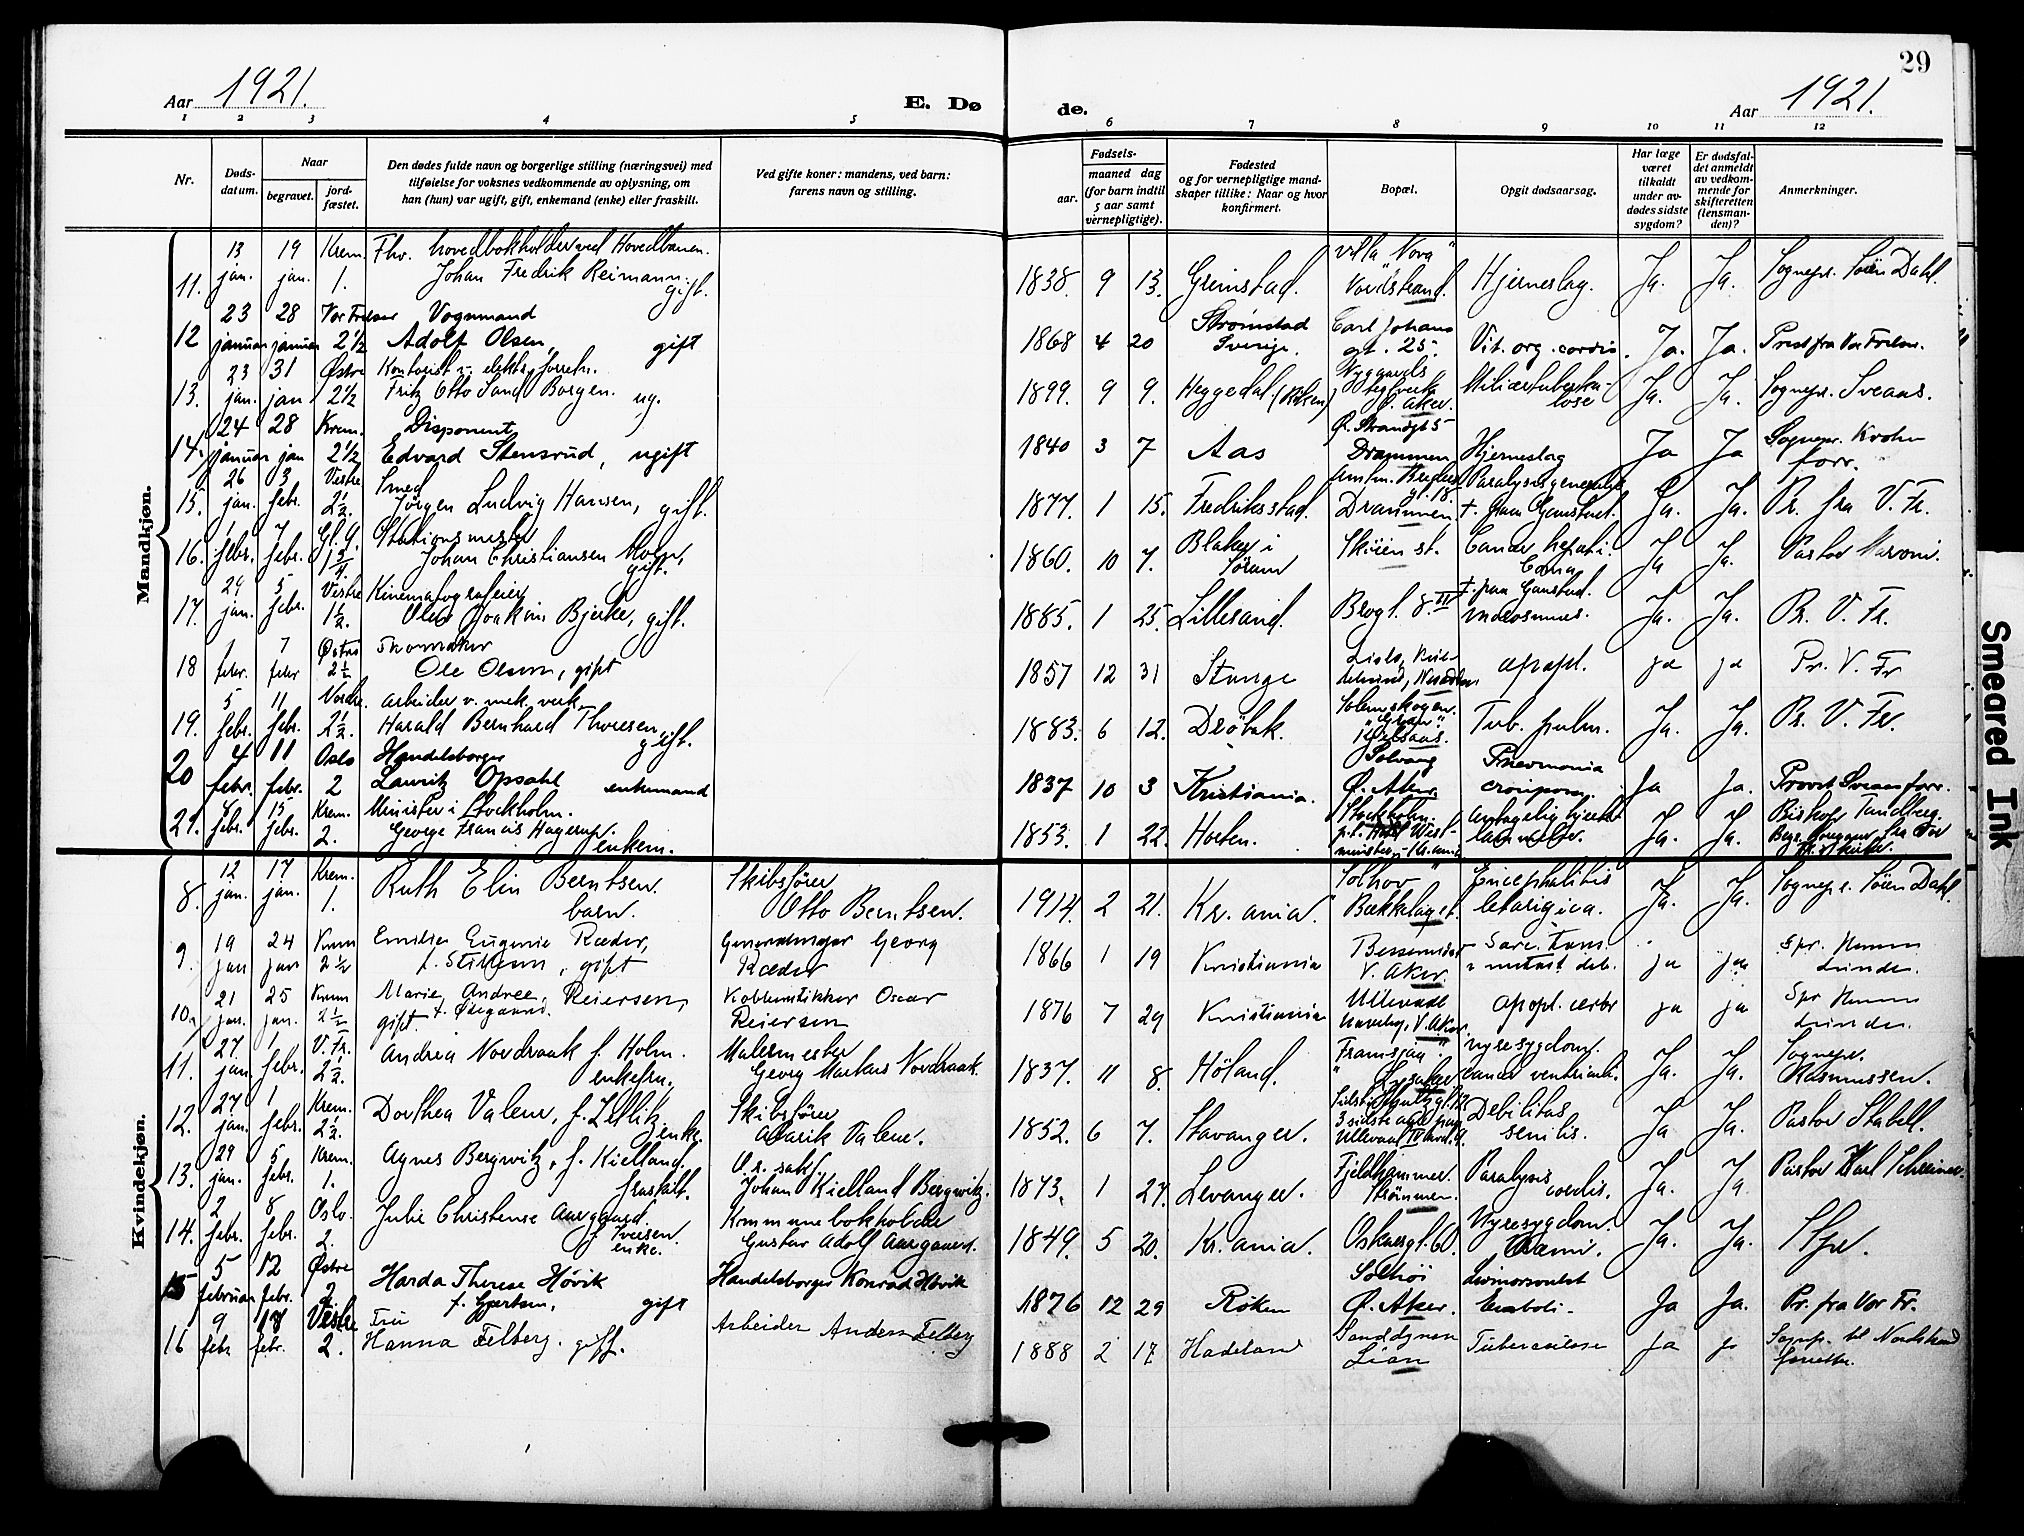 29
Aar 1921.
E. Dø
de.
Aar 1921.
1 2 3 4 5 6 7 8 9 10 11 12
Nr.
Døds-
datum.
Naar
begravet.
jord-
fæstet.
Den dødes fulde navn og borgerlige stilling (næringsvei) med
tilføielse for voksnes vedkommende av oplysning, om
han (hun) var ugift, gift, enkemand (enke) eller fraskilt.
Ved gifte koner: mandens, ved barn:
farens navn og stilling.
Fødsels-
aar.
maaned dag
(for barn indtil
5 aar samt
vernepligtige).
Fødested
og for vernepligtige mand-
skaper tillike: Naar og hvor
konfirmert.
Bopæl.
Opgit dødsaarsag.
Har læge
været
tilkaldt
under av-
dødes sidste
sygdom?
Er dødsfal-
det anmeldt
av vedkom-
mende for
skifteretten
(lensman-
den)?
Anmerkninger.
Mandkjøn.
13 19 Krem. Fhv. hovedbokholder ved Hovedbanen.
11. jan. jan. 1. Johan Fredrik Reimann. gift.
Villa "Nova"
1838. 9 13. Grimstad. Nordstrand. Hjerneslag. Ja. Ja. Sognepr. Søren Dahl.
23 28 Vor Frelser Vognmand
12 januar januar 2 1/2 Adolf Olsen, gift
Strømstad Carl Johans
1868 4 20 Sverige. gt. 25. Vit. org. cordis. Ja. Ja. Præst fra Vor Frelser.
23 31 Østre Kontorist v. elektr. forretn.
13. jan. jan 2 1/2 Fritz Otto Sand Borgen. ug.
1899. 9 9. Heggedal (Røken) Ø. Aker. Miliærtuberku-
lose Ja. Ja. Sognepr. Sveaas.
24 28 Krem. Disponent
14. januar jan 2 1/2 Edvard Stensrud, ugift
Ø. Strandgt 5
1840 3 7 Aas Drammen Hjerneslag Ja Ja Sognepr. Krohn
forr.
26 3 Vestre Smed
15. jan. febr. 2 1/2. Jørgen Ludvig Hansen, gift.
gt. 18. Paralysis generalis
1877. 1 15. Fredriksstad. Drammen. † paa Gaustad. Ja. Ja. Pr. fra V. Fr.
1 7 Gl. A. Stationsmester
16. febr. febr. 1 3/4. Johan Christiansen Moen, gift.
1860. 10 7. Blaker i
Sørum Skøien st. Cancer hepatis.
Coma Ja Ja. Pastor Maroni.
29 5 Vestre Kinematografeier
17. jan. febr. 1 1/2. Olaf Joakim Bjerke, gift.
† paa Gaustad.
1885. 1 25. Lillesand. Brogt. 8 II Ja. Ja. Pr. V. Fr.
1 7 Østre Skomaker
18 febr. febr 2 1/2 Ole Olsen, gift
1857 12 31 Stange Nesodden apopl. ja ja Pr. V. Fr
5 11 Nordre. arbeider v. mek. verk.
19. febr. febr. 2 1/2. Harald Bernhard Thoresen, gift.
Solemskogen.
1883. 6 12. Drøbak. "Gran"
Kjelsaas. Tub. pulm. Ja. Ja. Pr. V. Fr.
4 11 Oslo Handelsborger
20 febr. febr. 2 Lauritz Opsahl enkemand
Solvang Pneumonia
1837 10 3 Kristiania. Ø. Aker. crouposa. Ja Ja. Provst Sveaas forr.
4 15 Krem. Minister i Stockholm.
21. febr. febr. 2. George Francis Hagerup, enkem.
1853. 1 22. Horten. Stockholm.
p.t. Hotel West-
minster - Kr.ania antagelig hjerte-
lammelse. Ja. Ja. Biskop Tandberg.
Kvindekjøn.
12 17 Krem.
8. jan. jan. 1. Ruth Elin Berntsen.
barn. Skibsfører
Otto Berntsen.
"Solhov" Encephalitis
1914. 2 21. Kr.ania. Bækkelaget. letargica. Ja. Ja. Sognepr. Søren Dahl.
9. 19 24 Krem Emilie Eugenie Ræder, Generalmajor Georg
jan jan 2 1/2 gift Ræder
1866 1 19 Kristiania Bessemvei
V. Aker. Sarc. ja ja Spr. Hans
Linder.
21 25 Krem Marie Andrea Reiersen, Kobberstikker Oscar
10. jan. jan. 2 1/2 gift. Reiersen
1876 7 29 Kristiania Ullevaal
Haveby, V. Aker. apopl. cerebr ja ja Spr Hans
Linder.
27 1 V. Fr.
11. jan febr. 2 1/2. Andrea Nordraak f. Holm.
enkefru, Malermester
Georg Markus Nordraak.
"Framsjaa" Nyresygdom.
1837. 11 8. Høland. Lysaker Cancer ventriculi. Ja. Ja. Sognepr.
Rasmussen.
27 1 Krem.
12. jan. febr. 2 1/2. Dorthea Valeur, f. Zetlitz,
enke. Skibsfører
Alarik Valeur.
1852. 6 7. Stavanger. Debilitas
senilis. Ja Ja. Pastor Stabell.
29 5 Krem.
13. jan. febr. 1. Agnes Bergwitz, f. Kielland.
fraskilt. O.r. sakf.
Johan Kielland Bergwitz.
1873. 1 27. Levanger. Fjeldhammer
Strømmen. Paralysis
cordis. Ja. Ja Pastor Karl Schreiner
2 8 Oslo.
14. febr. febr. 2. Julie Christense Aargaard.
f. Iversen.
enke. Kommunebokholder
Gustav Adolf Aargaard.
1849. 5 20. Kr.ania. Oskarsgt. 60. Nyresygdom.
Uræmi. Ja. Ja. Sspr.
5 12 Østre
15 februar febr. 2 Harda Therese Høvik
f. Gjertsen, gift Handelsborger Konrad Høvik
Solhøi
1876 12 29 Røken Ø. Aker. Emboli - Ja Ja. Pr. fra Vor Fr.
9 17 Vestre Fru
16 febr. febr. 2. Hanna Felberg. gift. Arbeider Anders Felberg
1888 2 17 Hadeland Sanddynen
Lian Tuberculose Ja Ja Sognepr. til Nordstrand
forretter.
Smeared Ink